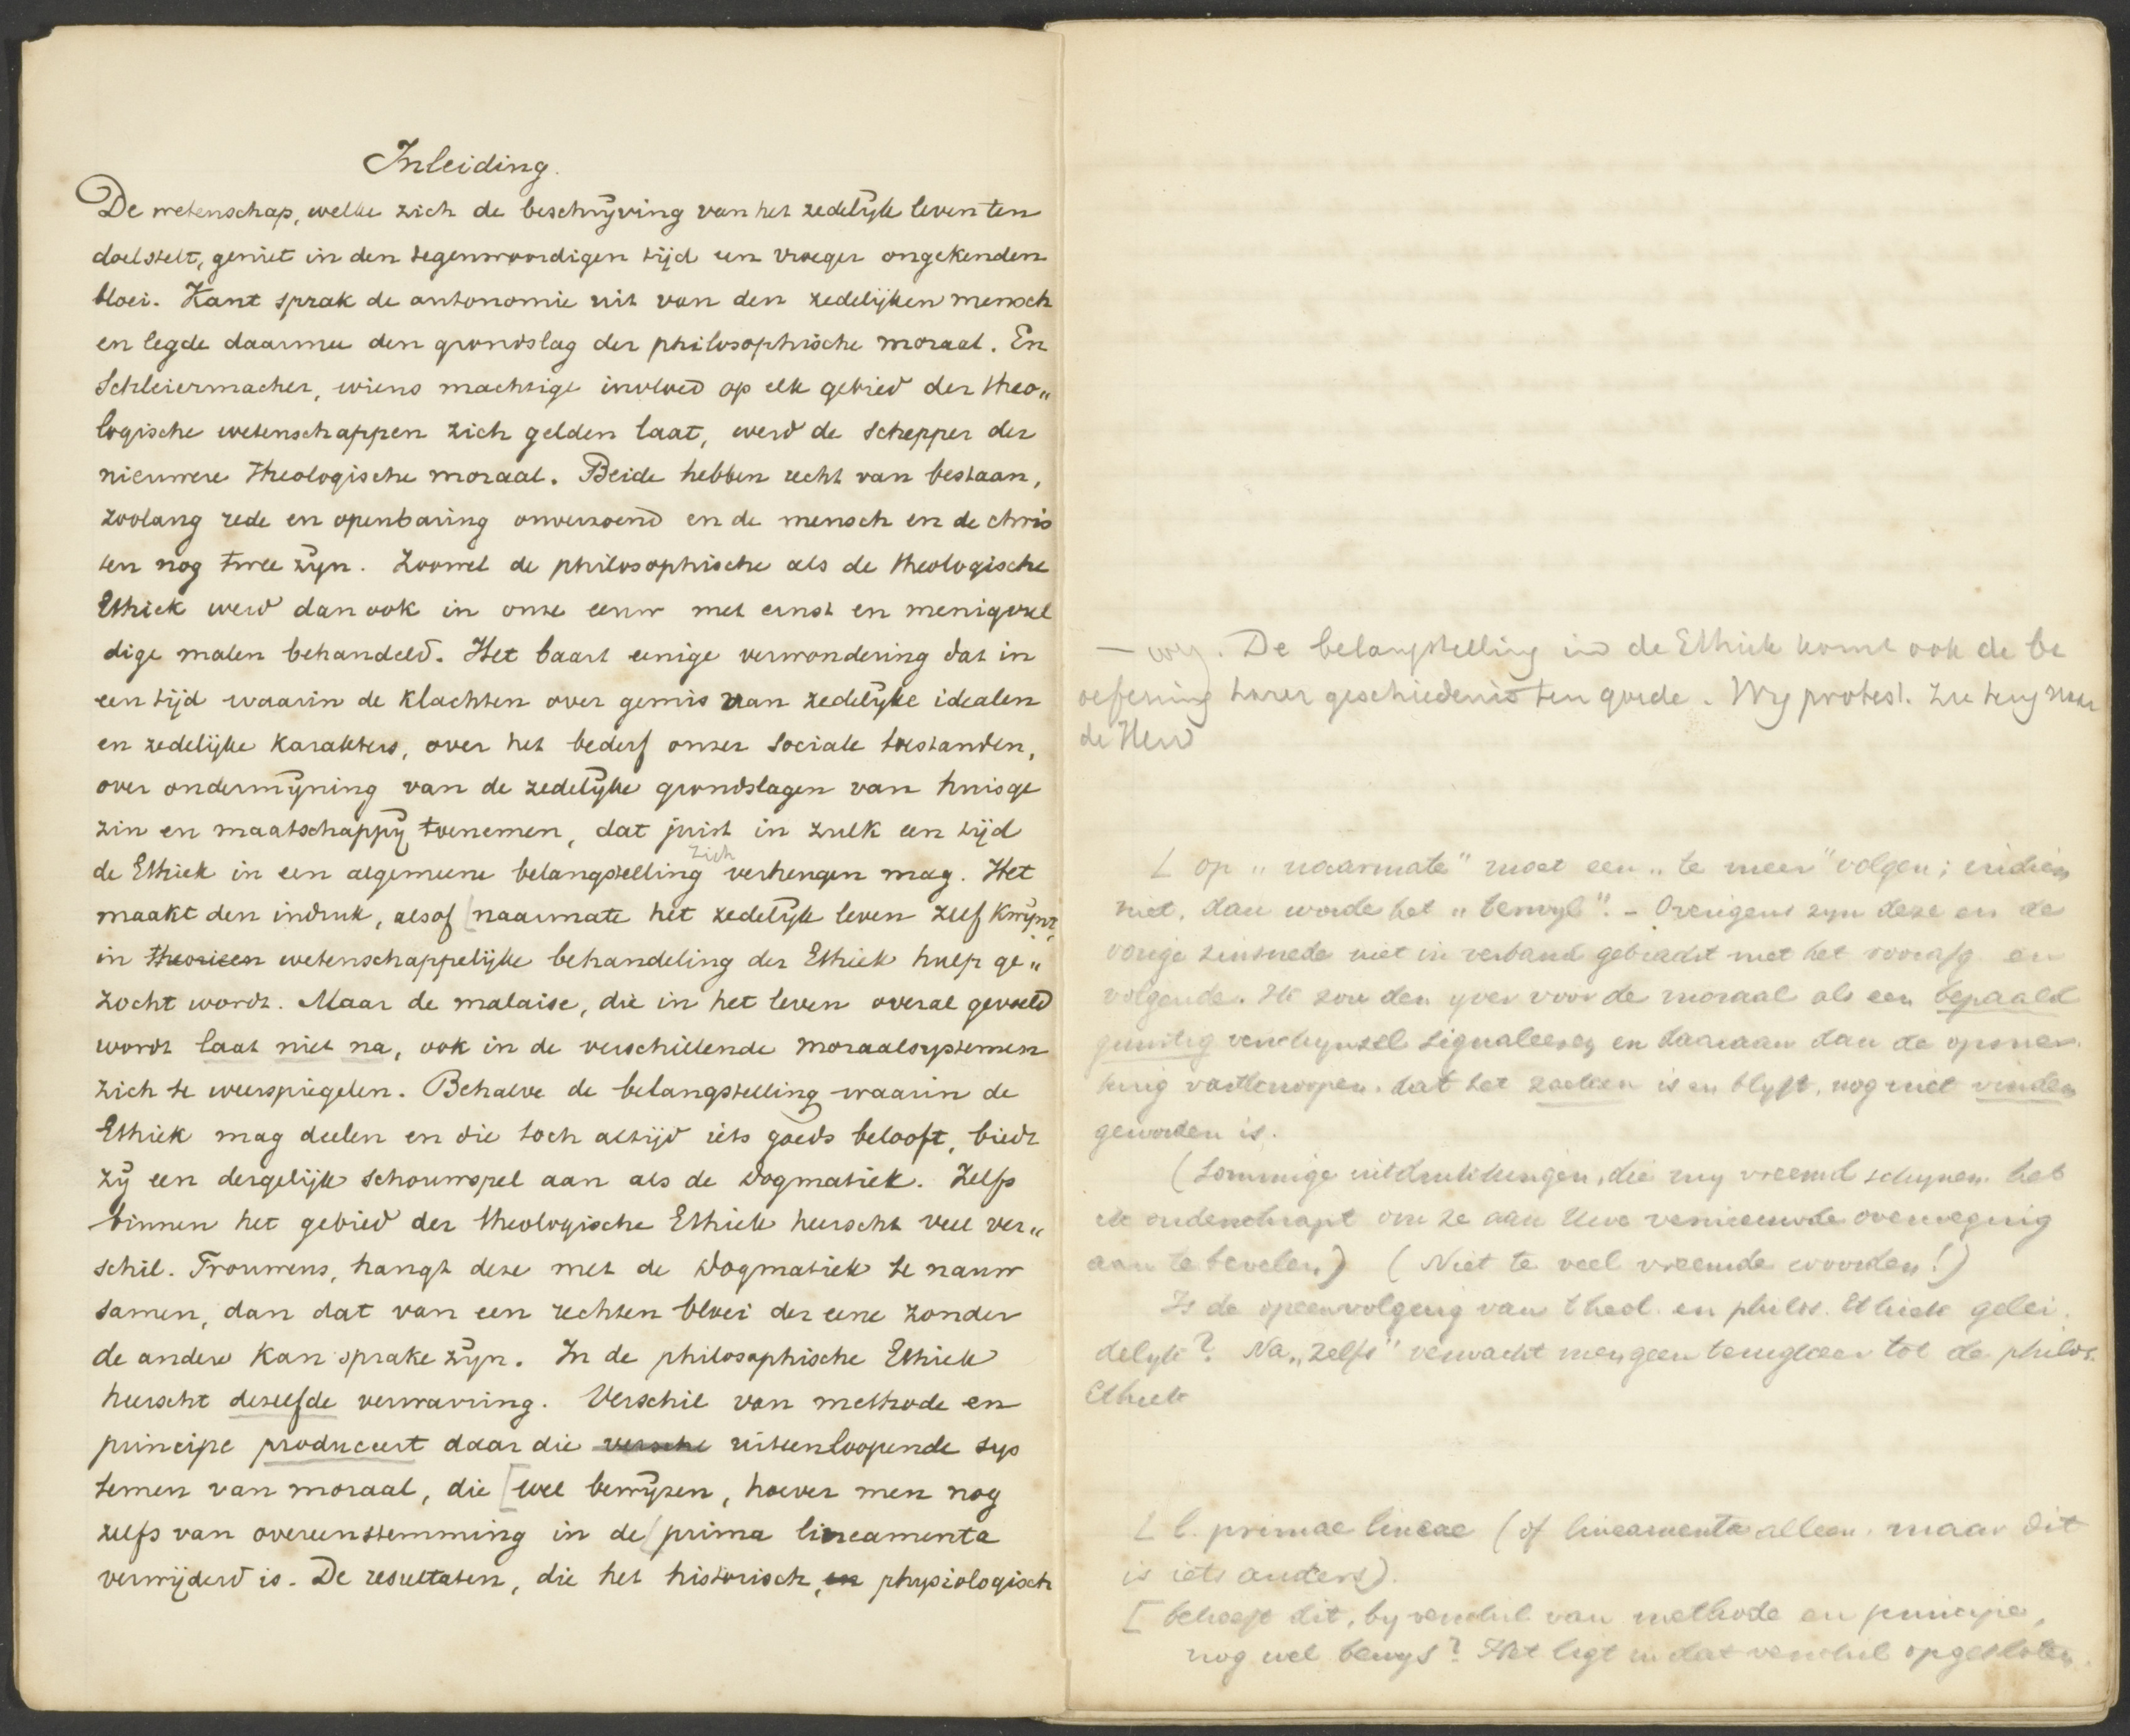 Inleiding.
De wetenschap, welke zich de beschrijving van het zedelijk leven ten
doel stelt, geniet in den tegenwoordigen tijd een vroeger ongekenden
bloei. Kant sprak de autonomie uit van den zedelijken mensch
en legde daarmee den grondslag der philosophische moraal. En
Schleiermacher, wiens machtige invloed op elk gebied der theo„
logische wetenschappen zich gelden laat, werd de schepper der
nieuwere theologische moraal. Beide hebben recht van bestaan,
zoolang rede en openbaring onverzoend en de mensch en de chris
ten nog twee zijn. Zoowel de philosophische als de theologische
Ethiek werd dan ook in onze eeuw met ernst en menigvul
dige malen behandeld. Het baart eenige verwondering dat in
een tijd waarin de klachten over gemis van zedelijke idealen
en zedelijke karakters, over het bederf onzer sociale toestanden,
over ondermijning van de zedelijke grondslagen van huisge
zin en maatschappij toenemen, dat juist in zulk een tijd
de Ethiek in een algemeene belangstelling zich verheugen mag. Het
maakt den indruk, alsof [naarmate het zedelijk leven zelf kwijnt,
in theorieen wetenschappelijke behandeling der Ethiek hulp ge„
zocht wordt. Maar de malaise, die in het leven overal gevoeld
wordt laat niet na, ook in de verschillende moraalsystemen
zich te weerspiegelen. Behalve de belangstelling waarin de
Ethiek mag deelen en die toch altijd iets goeds belooft, biedt
zij een dergelijk schouwspel aan als de Dogmatiek. Zelfs
binnen het gebied der theologische Ethiek heerscht veel ver„
schil. Trouwens, hangt deze met de Dogmatiek te nauw
samen, dan dat van een rechten bloei der eene zonder
de andere kan sprake zijn. In de philosophische Ethiek
heerscht dezelfde verwarring. Verschil van methode en
principe produceert daar die uiteenloopende sys
temen van moraal, die [wel bewijzen, hoever men nog
zelfs van overeenstemming in de [prima lineamenta
verwijderd is. De resultaten, die het historisch, en physiologisch
— weg. De belangstelling in de Ethiek komt ook de be
oefening harer geschiedenis ten goede. Wij protest. zie terug naar
de
[ op „naarmate" moet een „te meer" volgen; indien
niet, dan worde het „terwijl". – Overigens zijn deze en de
vorige zinsnede niet in verband gebracht met het voorafg. en
volgende. Ik zou den yver voor de moraal als een bepaald
gunstig verschynsel signaleeren en daaraan dan de opmer.
king vastknoopen, dat het zoeken is en blyft, nog niet vinden
geworden is.
(Sommige uitdrukkingen, die my vreemd schynen, heb
ik onderschrapt om ze aan Uwe vernieuwde overweging
aan te bevelen) (Niet te veel vreemde woorden!)
Is de opeenvolging van theol. en philos. Ethiek gelei.
delyk? Na „zelfs" verwacht men geen terugkeer tot de philos.
Ethiek
[ l. primae lineae (of lineamenta alleen, maar dit
is iets anders).
[ behoeft dit, by verschil van methode en principe,
nog wel bewys? Het ligt in dat verschil opgesloten.